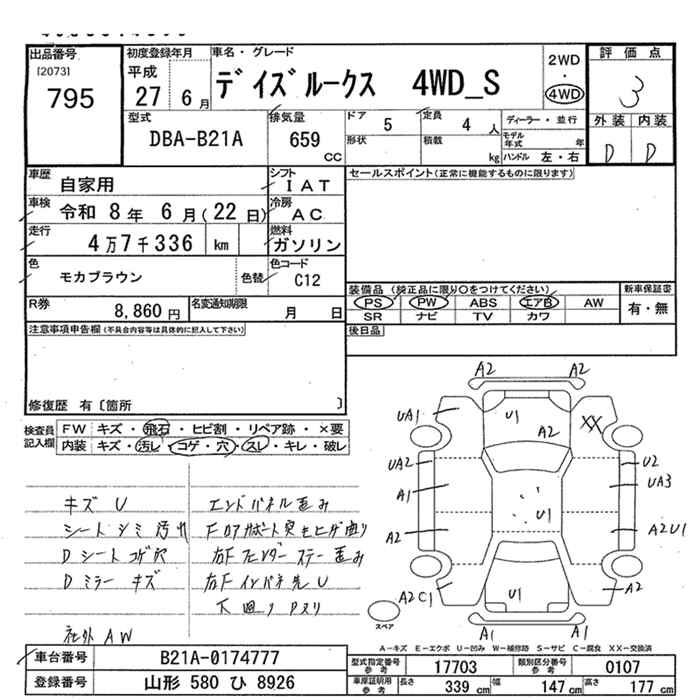 出品番号
[2073]
795
初度登録年月
平成
27 6月
車名・グレード
デイズルークス 4WD_S
2WD
・
4WD
評価点
3
外装 内装
D D
型式
DBA-B21A
排気量
659
CC
ドア
5
定員
4 人
形状
積載
kg
ディーラー・並行
モデル年式 年
ハンドル 左・右
車歴
自家用
シフト
IAT
車検
令和 8年 6月(22日)
冷房
AC
走行
4万7千336 km
燃料
ガソリン
色
モカブラウン
色替
色コード
C12
R券
8,860円
名変通知期限
月 日
セールスポイント(正常に機能するものに限ります)
装備品(純正品に限り○をつけてください)
PS PW ABS エアB AW
SR ナビ TV カワ
新車保証書
有・無
後日品
注意事項申告欄(不具合内容等は具体的に記入して下さい)
修復歴 有〔箇所 〕
検査員記入欄
FW キズ・飛石・ヒビ割・リペア跡・×要
内装 キズ・汚レ・コゲ・穴・スレ・キレ・破レ
キズ U
シートシミ 汚れ
Dシートコゲ穴
Dミラーキズ
社外AW
エンドパネル歪み
右Fフェンダーステー歪み
右Fインパネ先U
下廻りPヌリ
A2 A2
UA1 U1 XX
A2
UA2 U2
A1 UA3
U1
A2 A2U1
A2C1 U1 A2
A1 A1
スペア
A-キズ E-エクボ U-凹み W-補修跡 S-サビ C-腐食 XX-交換済
車台番号 B21A-0174777
登録番号 山形 580 ひ 8926
型式指定番号
参考
17703
類別区分番号
参考
0107
車庫証明用
参考
長さ 339 cm 幅 147 cm 高さ 177 cm